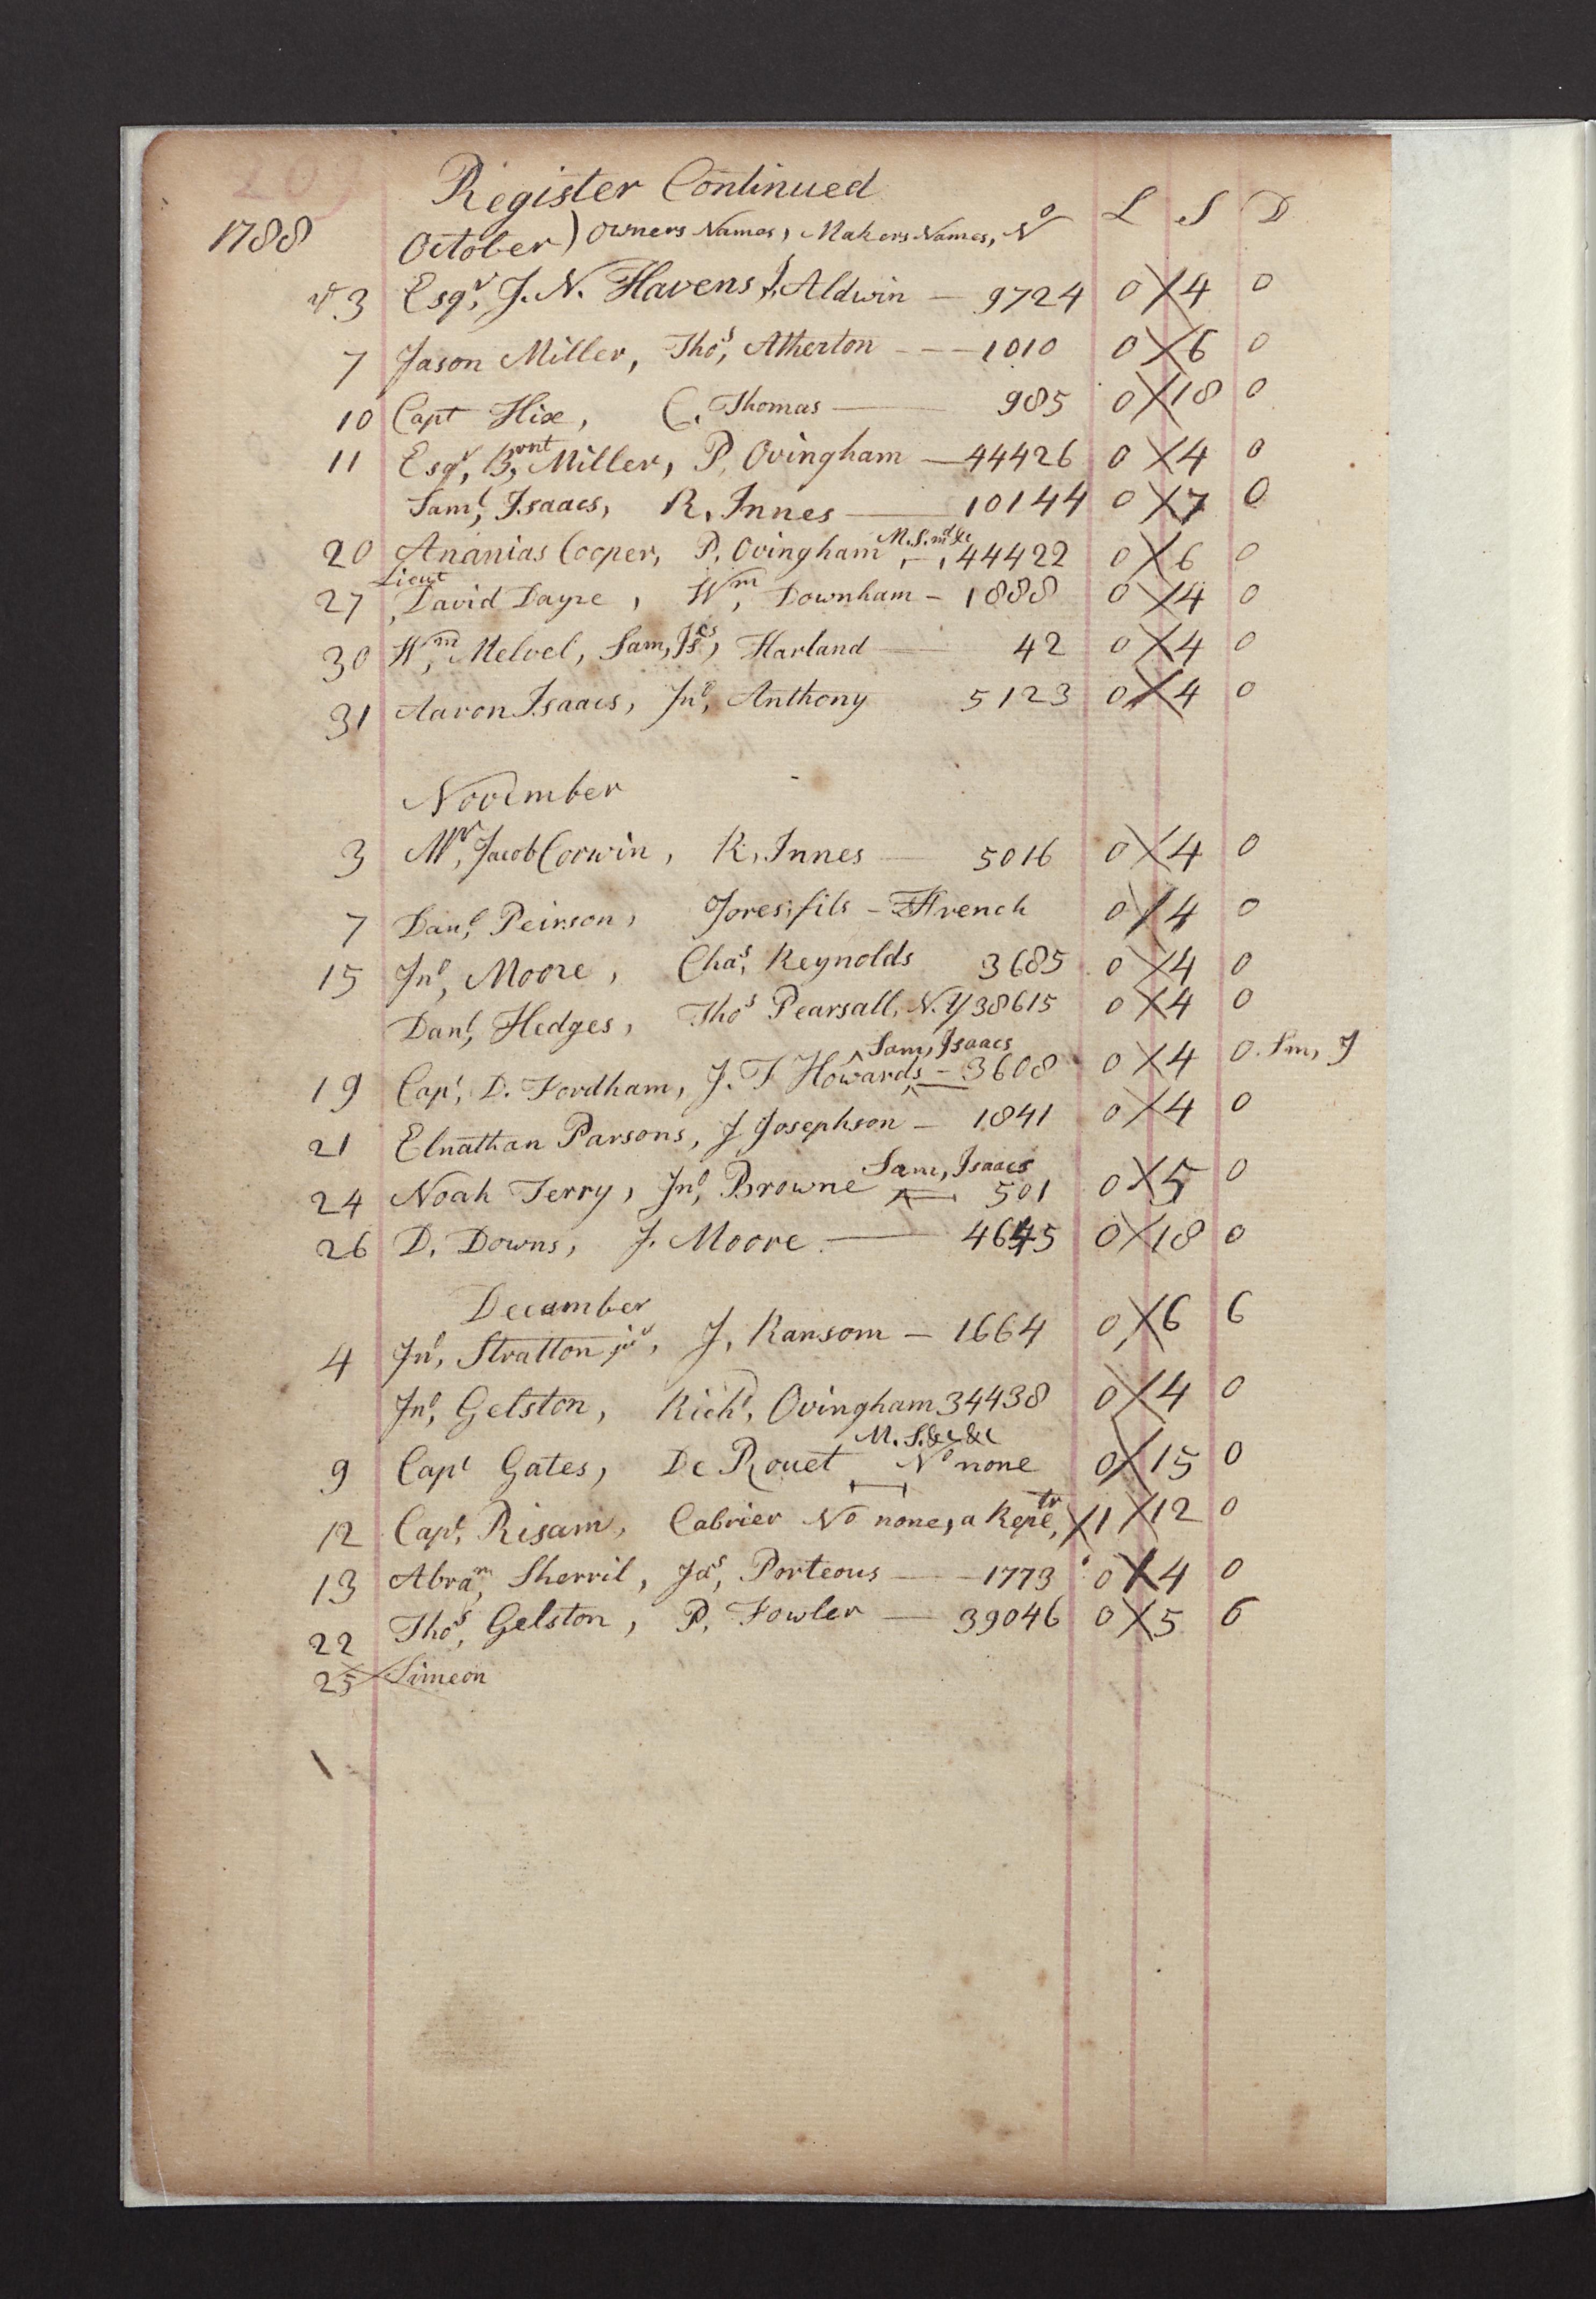 Register Continued
1788 October) Owners Names, Makers Names, No L S D
3 Esqr, J. N. Havens, J, Aldwin — 9724 0 4 0
7 Jason Miller, Thos, Atherton — 1010 0 6 0
10 Capt Hix, C. Thomas — 985 0 18 0
11 Esqr, Brnt, Miller, P, Ovingham — 44426 0 4 0
Saml, Isaacs, R, Innes — 10144 0 7 0
M.S.md &c
20 Ananias Cooper, P, Ovingham, — 44422 0 6 0
Lieut
27 David Dayre, Wm, Downham — 1888 0 4 0
30 Wm, Melvel, Sam, Iscs, Harland — 42 0 4 0
31 Aaron Isaacs, Jno, Anthony 5123 0 4 0
November
3 Mr, Jacob Corwin, R, Innes — 5016 0 4 0
7 Danl, Peirson, Jores, fils — French 0 4 0
15 Jno, Moore, Chas, Reynolds 3685 0 4 0
Danl, Hedges, Thos Pearsall, N.Y 38615 0 4 0
Sam, Isaacs
19 Capt, D. Fordham, J. T Howards — 3608 0 4 0. Sm, J
21 Elnathan Parsons, J Josephson — 1841 0 4 0
Sam, Isaacs
24 Noah Terry, Jno, Browne 501 0 5 0
26 D. Downs, J. Moore — 4645 0 18 0
December
4 Jno, Stratton jur, J, Ransom — 1664 0 6 6
Jno, Gelston, Richd, Ovingham 34438 0 4 0
M. S. &c &c
9 Capt Gates, De Rouet No none 0 15 0
12 Capt, Risam, Cabrier No none, a Repetr, 1 12 0
13 Abram, Sherril, Jas, Porteous — 1773 0 4 0
22 Thos, Gelston, P, Fowler — 39046 0 5 6
25 Simeon